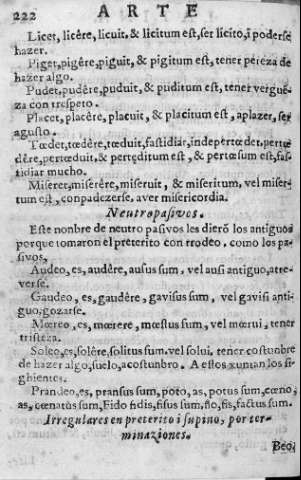 222 ARTE
Licet, licêre, licuit, & licitum est, ser licito, i poderse
hazer.
Piget, pigêre, piguit, & pigitum est, tener pereza de
hazer algo.
Pudet, pudêre, puduit, & puditum est, tener verguẽ
za con respeto.
Placet, placêre, placuit, & placitum est, aplazer, ser
agusto.
Tœdet, tœdêre, tœduit, fastidiar, indepertœdet, pertœ
dêre, pertœduit, & perteditum est, & pertœsum est, fas
tidiar mucho.
Miseret, miserêre, miseruit, & miseritum, vel miser-
tum est, conpadezerse, aver misericordia.
Neutropasivos.
Este nonbre de neutro pasivos les dierõ los antiguos
porque tomaron el preterito con rrodeo, como los pa-
sivos.
Audeo, es, audêre, ausus sum, vel ausi antiguo, atre-
verse.
Gaudeo, es, gaudêre, gavisus sum, vel gavisi anti-
guo, gozarse.
Mœreo, es, mœrere, mœstus sum, vel mœrui, tener
tristeza.
Soleo, es, solêre, solitus sum, vel solui, tener costunbre
de hazer algo, suelo, acostunbro. A estos xuntan los si-
ghientes.
Prandeo, es, pransus sum, poto, as, potus sum, cœno,
as, cœnatùs sum, Fido fidis, fisus sum, fio, fis, factus sum.
Irregulares en preterito i supino, por ter-
minaziones.
Beo,